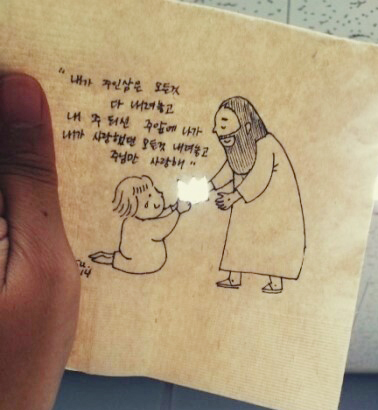 "내가 주인삼은 모든것
다 내려놓고
내 주 되신 주앞에 나가
내가 사랑했던 모든것 내려놓고
주님만 사랑해"